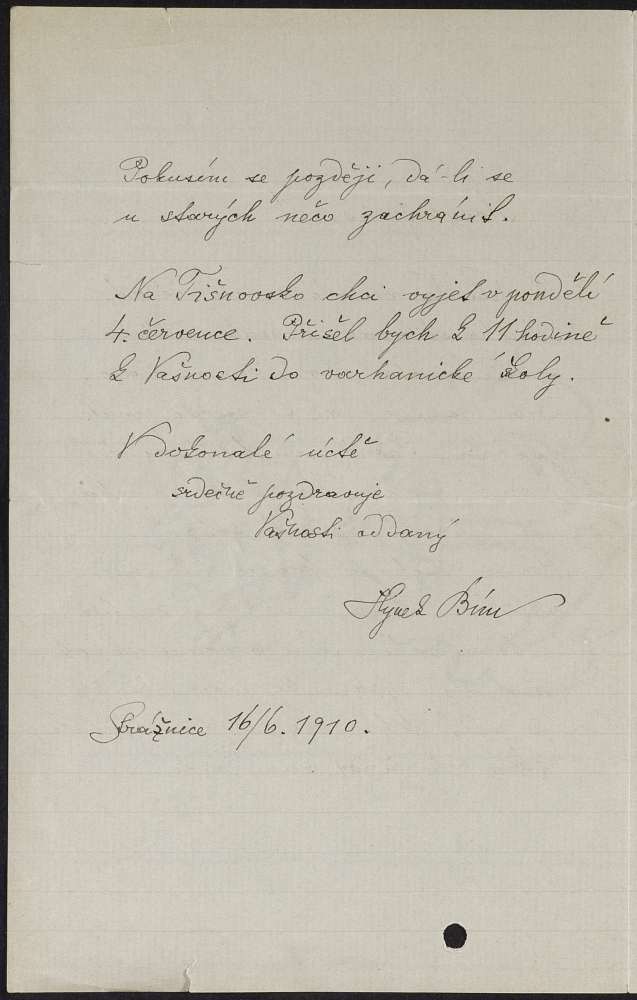 Pokusím se později, dá-li se
u starých něčo zachránit.
Na Tišnovsko chci vyjet v pondělí
4. července. Přišěl bych k 11 hodině
k Vašnosti do varhanické školy.
V dokonalé úctě
srdečně pozdravuje
Vašnosti oddaný
Hynek Bím
Strážnice 16/6. 1910.